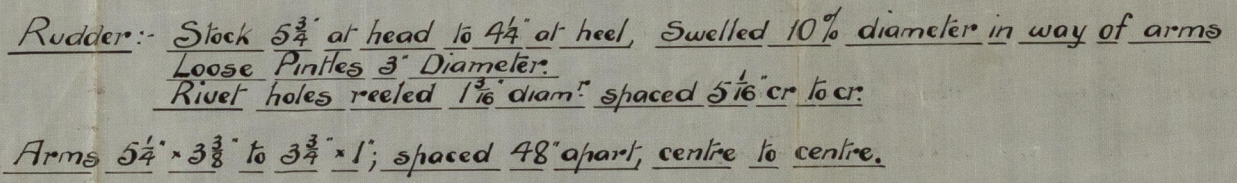 Rudder:- Stock 5¾" at head to 4¼" at heel, Swelled 10% diameter in way of arms
Loose Pintles 3" Diameter.
Rivet holes reeled 1 3/16" diamr. spaced 5 1/16" cr to cr.
Arms 5¼" × 3⅜" to 3¾" × 1"; spaced 48" apart, centre to centre.